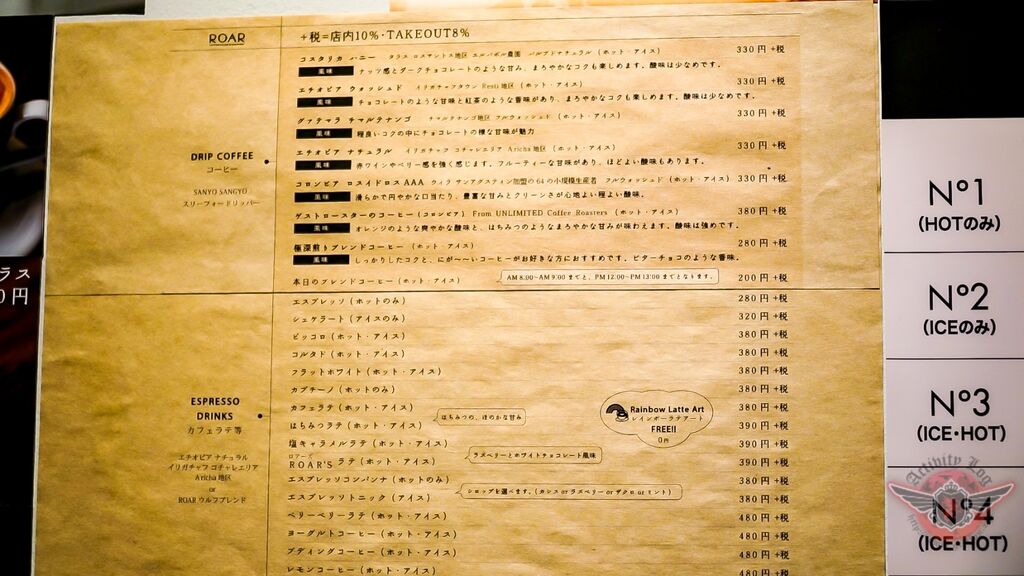 ROAR
+税=店内10%・TAKEOUT8%
コスタリカ ハニー タラス ロスサントス地区 エルバボル農園 パルプドナチュラル (ホット・アイス) 330円+税
風味 ナッツ感とダークチョコレートのような甘み、まろやかなコクも楽しめます。酸味は少なめです。
エチオピア ウォッシュド イリガチャフタウン Resti地区 (ホット・アイス) 330円+税
風味 チョコレートのような甘味と紅茶のような香味があり、まろやかなコクも楽しめます。酸味は少なめです。
グァテマラ チマルテナンゴ チマルテナンゴ地区 フルウォッシュド (ホット・アイス) 330円+税
風味 程良いコクの中にチョコレートの様な甘味が魅力
エチオピア ナチュラル イリガチャフ コチャレエリア Aricha地区 (ホット・アイス) 330円+税
風味 赤ワインやベリー感を強く感じます。フルーティーな甘味があり、ほどよい酸味もあります。
コロンビア ロスイドロスAAA ウィラ サンアグスティン加盟の64の小規模生産者 フルウォッシュド (ホット・アイス) 330円+税
風味 滑らかで円やかな口当たり、豊富な甘みとクリーンさが心地よい程よい酸味。
ゲストロースターのコーヒー(コロンビア) From UNLIMITED Coffee Roasters (ホット・アイス) 380円+税
風味 オレンジのような爽やかな酸味と、はちみつのようなまろやかな甘みが味わえます。酸味は強めです。
極深煎りブレンドコーヒー (ホット・アイス) 280円+税
風味 しっかりしたコクと、にが〜〜いコーヒーがお好きな方におすすめです。ビターチョコのような香味。
本日のブレンドコーヒー (ホット・アイス) AM 8:00~AM 9:00 までと、PM 12:00~PM 13:00 までとなります。 200円+税
DRIP COFFEE
コーヒー
SANYO SANGYO
スリーフォードリッパー
エスプレッソ (ホットのみ) 280円+税
シェケラート (アイスのみ) 320円+税
ピッコロ (ホット・アイス) 380円+税
コルタド (ホット・アイス) 380円+税
フラットホワイト (ホット・アイス) 380円+税
カプチーノ (ホットのみ) 380円+税
カフェラテ (ホット・アイス) 380円+税
はちみつラテ (ホット・アイス) はちみつの、ほのかな甘み 390円+税
塩キャラメルラテ (ホット・アイス) 390円+税
ロアーズ
ROAR'S ラテ (ホット・アイス) ラズベリーとホワイトチョコレート風味 390円+税
エスプレッソコンパンナ (ホットのみ) 380円+税
エスプレッソトニック (アイス) シロップを選べます。(カシス or ラズベリー or ザクロ or ミント) 380円+税
ベリーベリーラテ (ホット・アイス) 480円+税
ヨーグルトコーヒー (ホット・アイス) 480円+税
プディングコーヒー (ホット・アイス) 480円+税
レモンコーヒー (ホット・アイス) 480円+税
ESPRESSO
DRINKS
カフェラテ等
エチオピア ナチュラル
イリガチャフ コチャレエリア
Aricha地区
or
ROAR ウルフブレンド
Rainbow Latte Art
レインボーラテアート
FREE!!
0円
ラス
0円
N°1
(HOTのみ)
N°2
(ICEのみ)
N°3
(ICE・HOT)
N°4
(ICE・HOT)
Activity Log